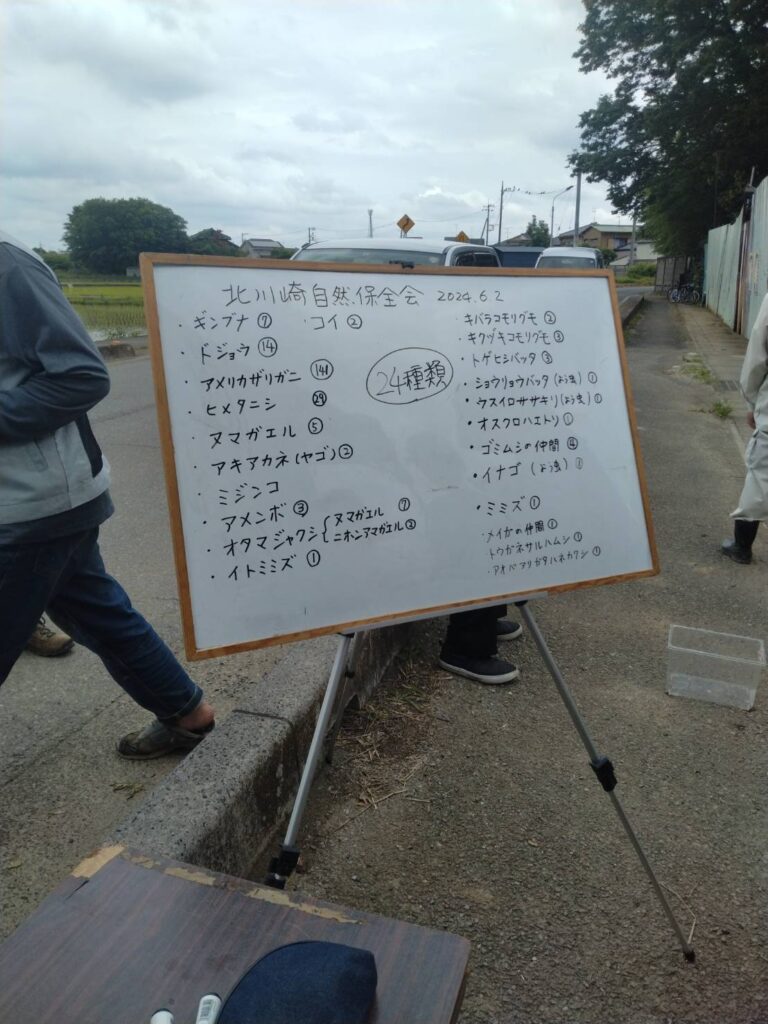 北川崎自然保全会 2024.6.2
・ギンブナ ⑦ ・コイ ②
・ドジョウ ⑭
・アメリカザリガニ (141)
・ヒメタニシ
・ヌマガエル ⑤
・アキアカネ(ヤゴ) ②
・ミジンコ
・アメンボ ③
・オタマジャクシ { ヌマガエル ⑦
ニホンアマガエル ②
・イトミミズ ①
24種類
・キバラコモリグモ ②
・キクヅキコモリグモ ③
・トゲヒシバッタ ③
・ショウリョウバッタ(よう虫) ①
・ウスイロササキリ(よう虫) ①
・オスクロハエトリ ①
・ゴミムシの仲間 ④
・イナゴ (よう虫) ①
・ミミズ ①
・メイガの仲間 ①
・トウガネサルハムシ ①
・アオバアリガタハネカクシ ①